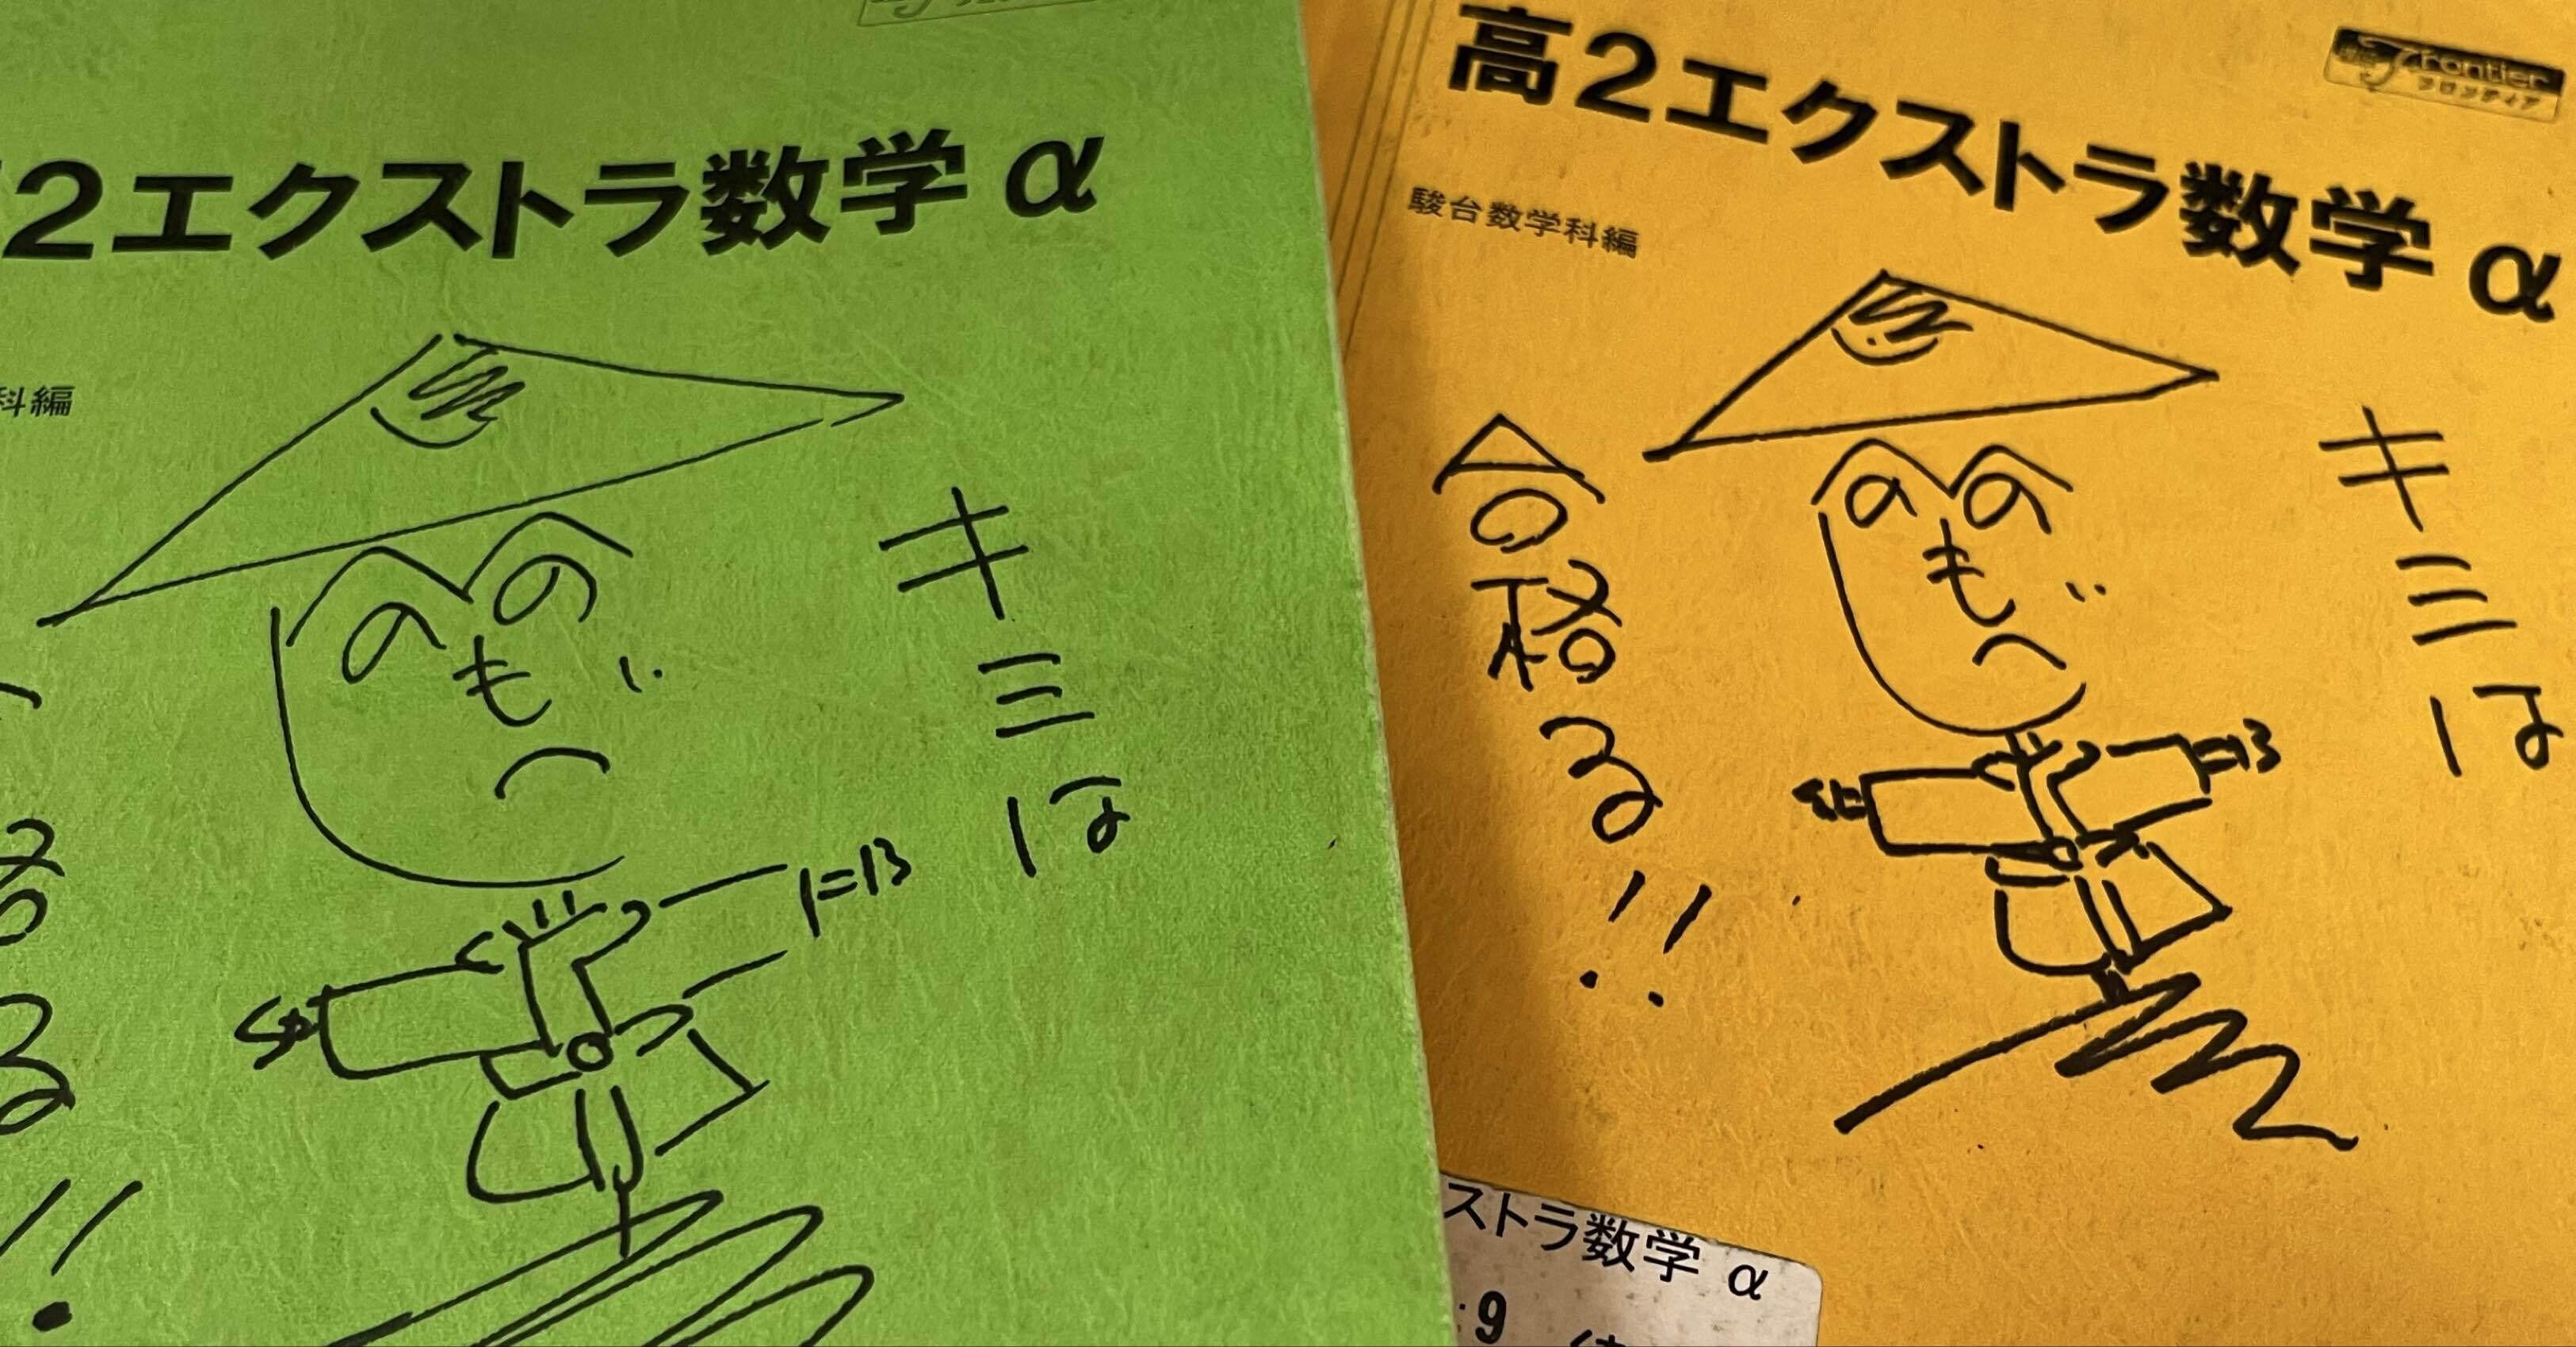 2エクストラ数学 α
科編
キミは
高2エクストラ数学 α
駿台数学科編
Frontier
フロンティア
キミは
合格る!!
ストラ数学 α
9